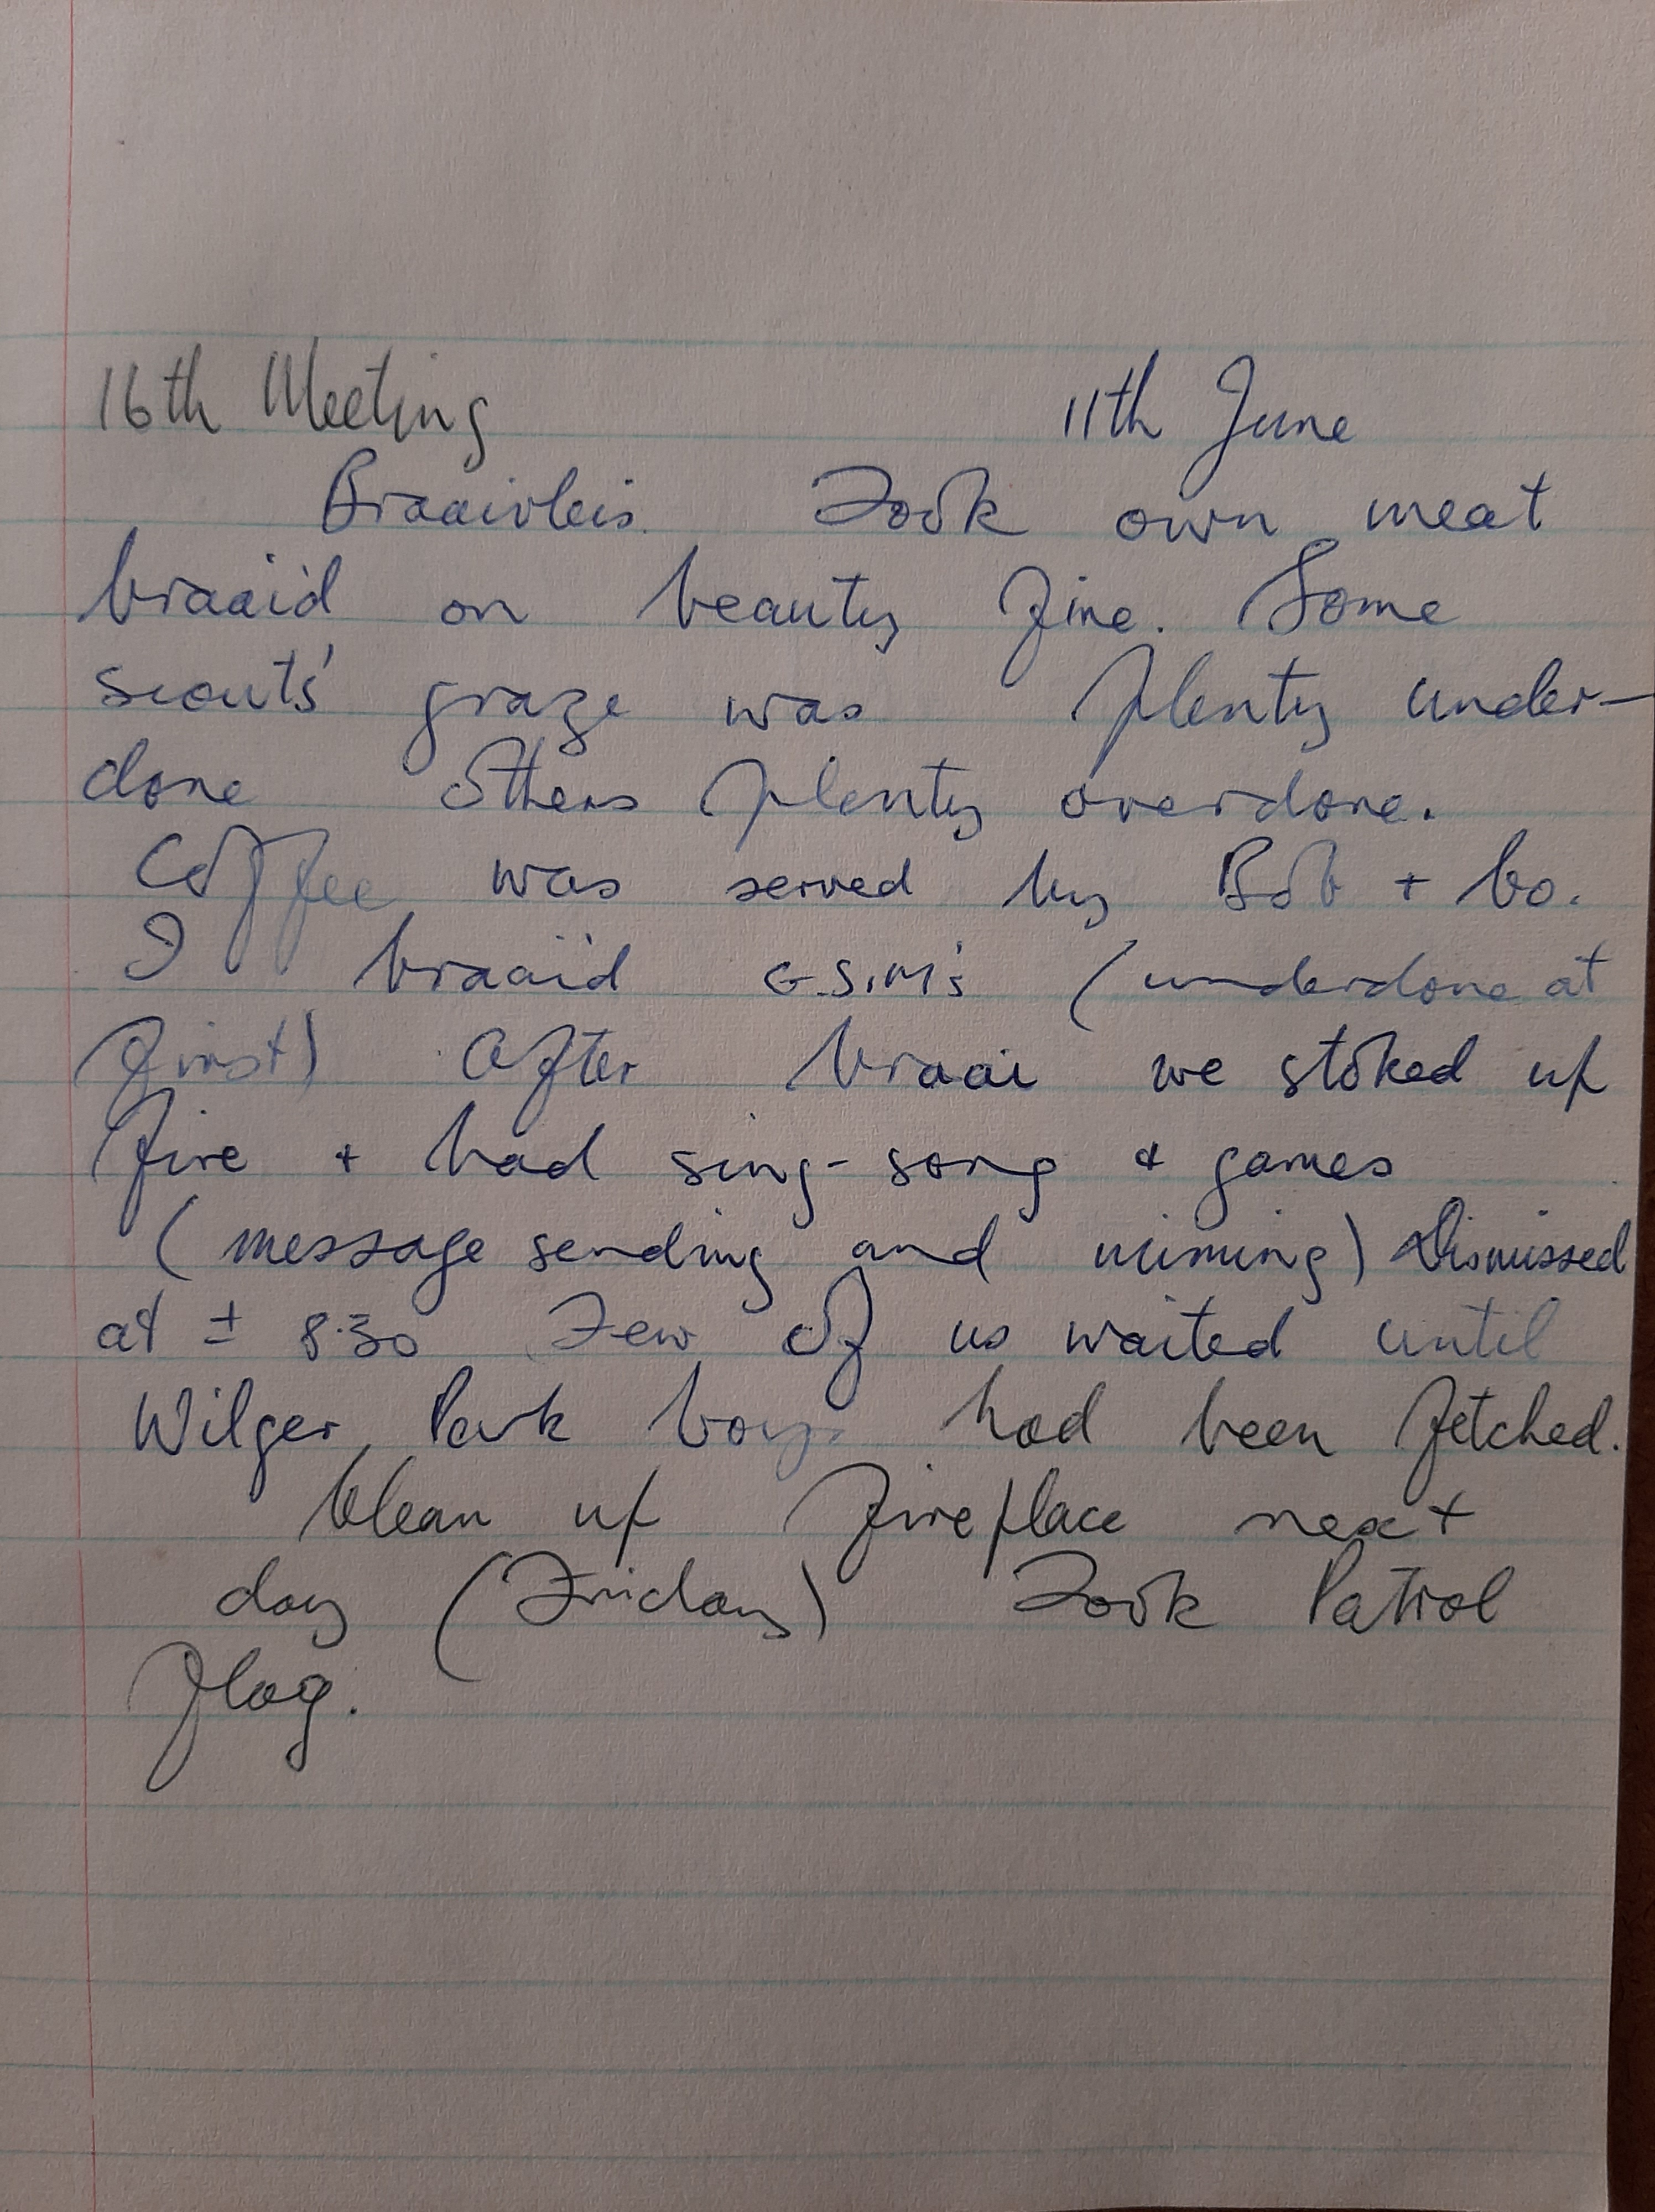 16th Meeting 11th June
Braaivleis. Took own meat
braaid on beauty fire. Some
scouts' graze was plenty under-
done Others plenty overdone.
Coffee was served by Bob + Co.
I braaid G.S.M's (underdone at
first) After braai we stoked up
fire + had sing-song & games
(message sending and miming) Dismissed
at ± 8.30 Few of us waited until
Wilger Park boys had been fetched.
Clean up fireplace next
day (Friday) Took Patrol
flag.